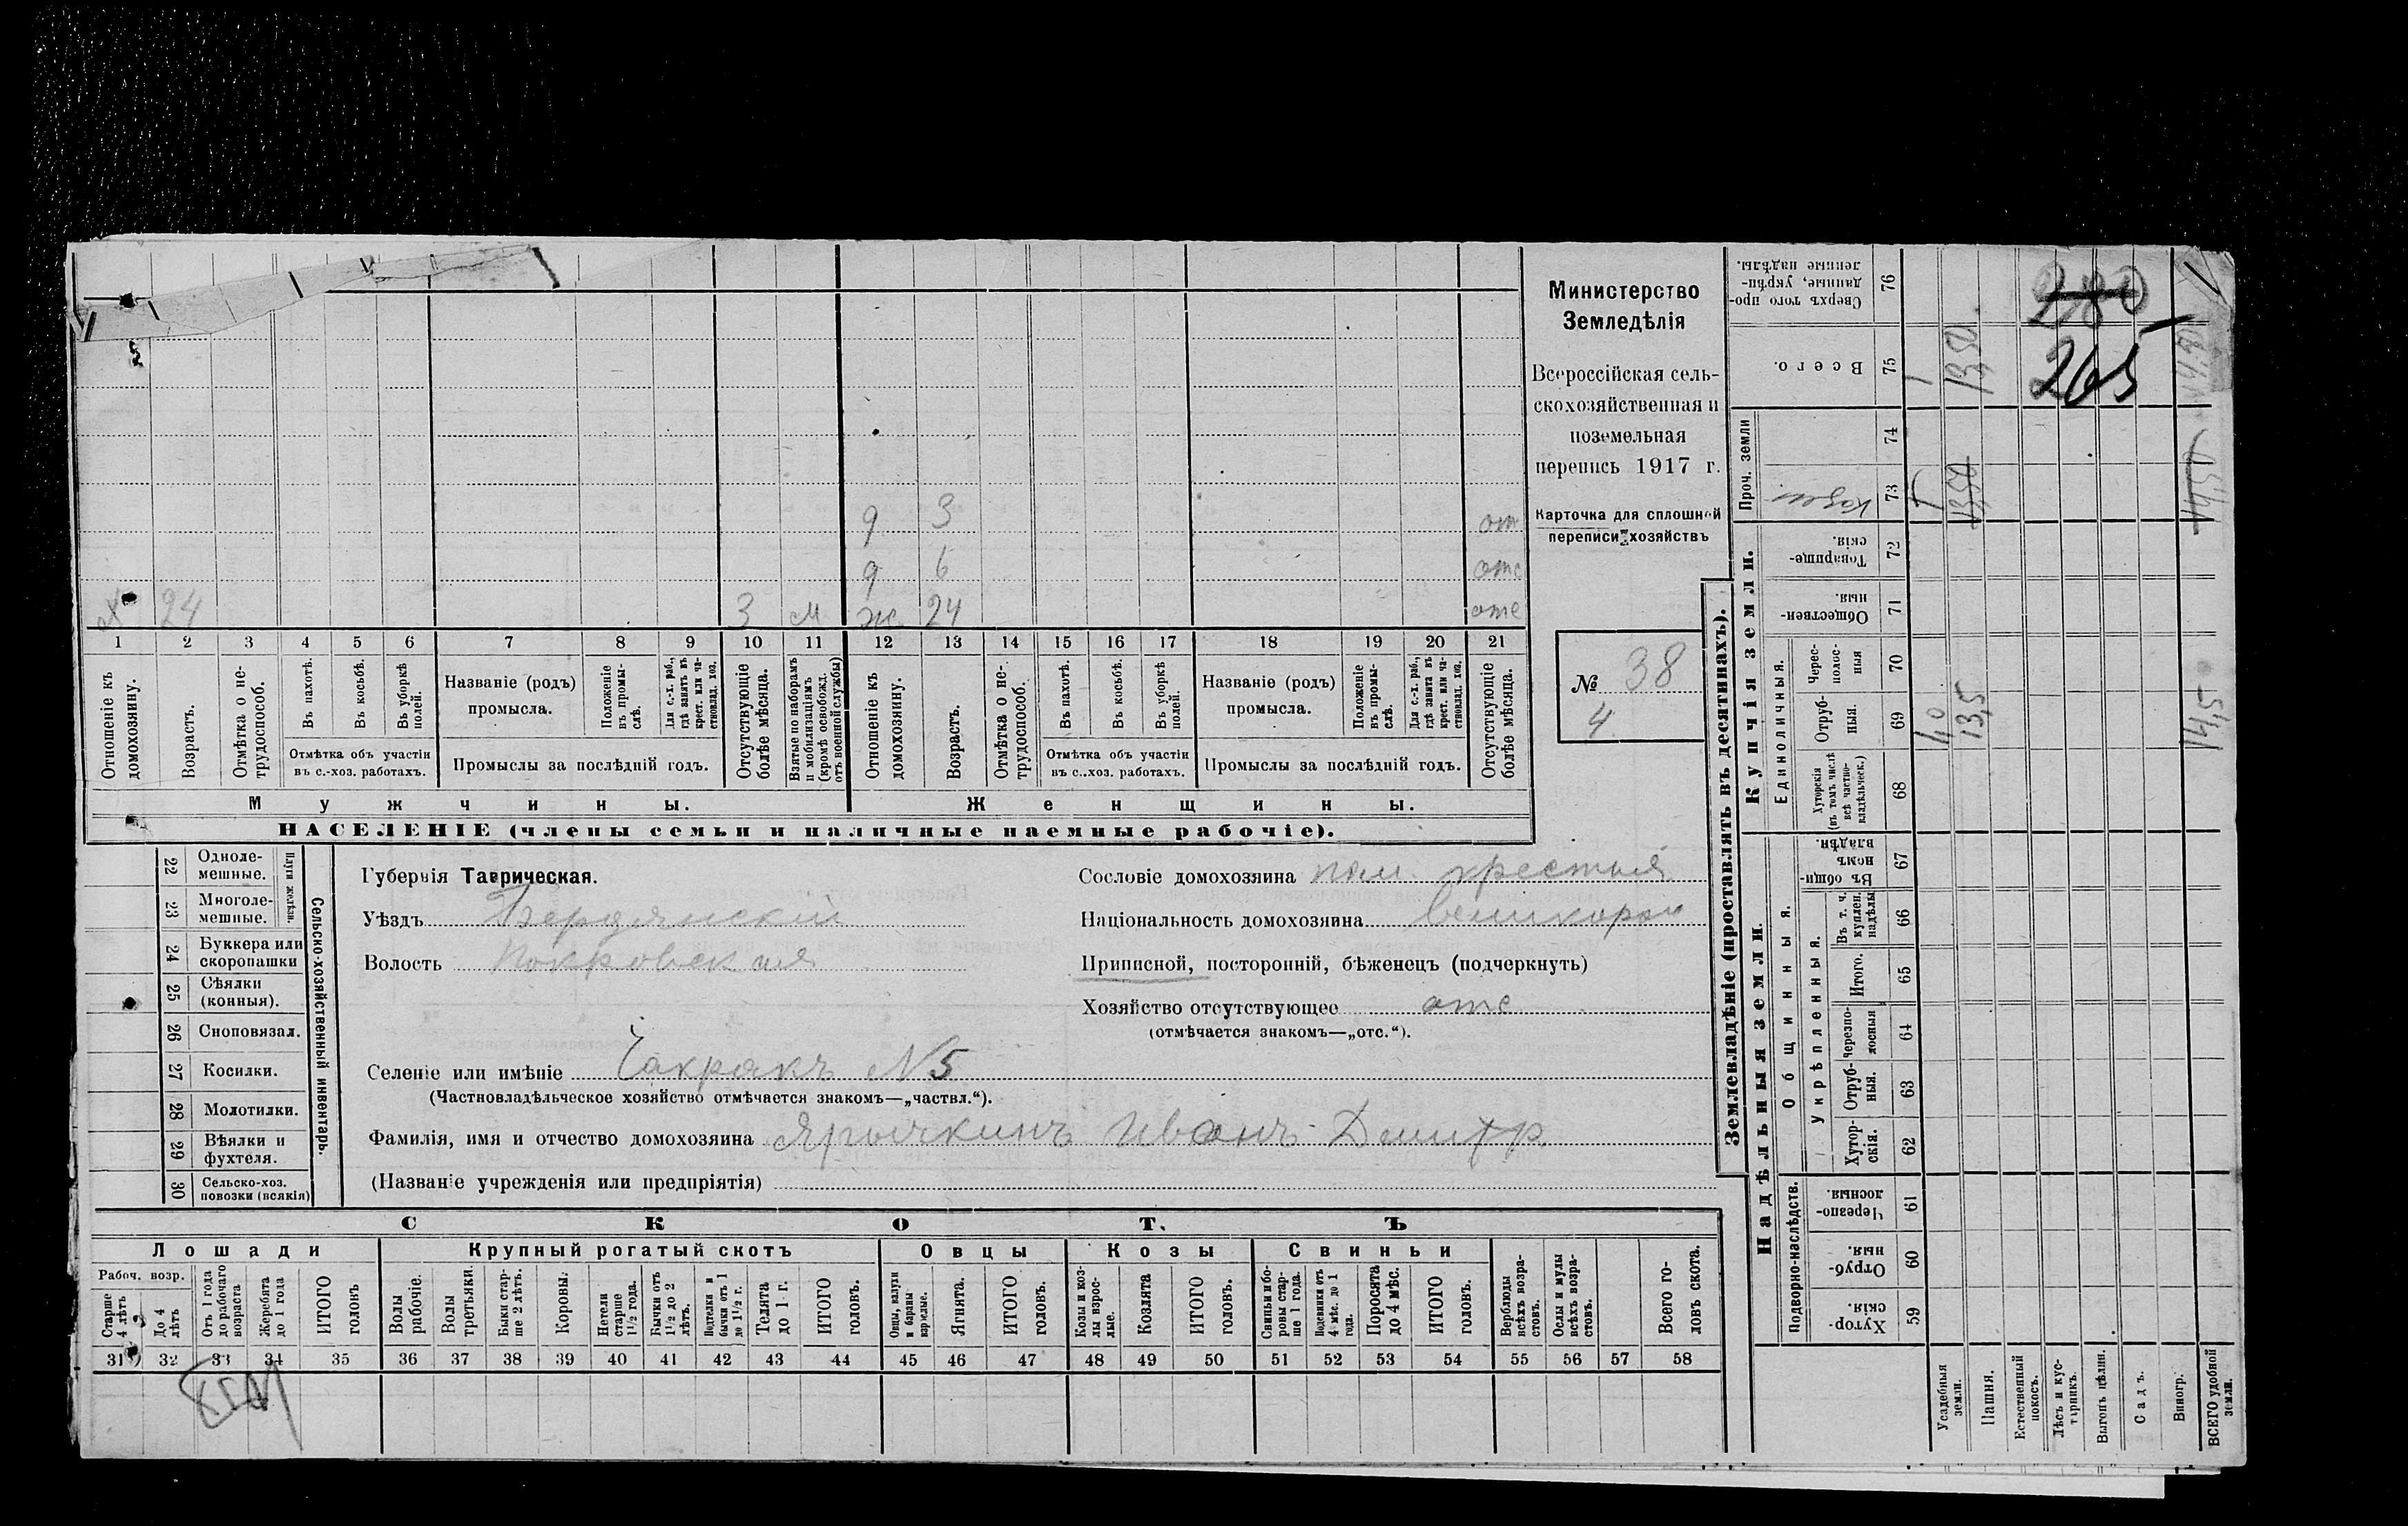 280
265
Министерство
Земледѣлія
Всероссійская сель-
скохозяйственная и
поземельная
перепись 1917 г.
Карточка для сплошной
переписи хозяйствъ
№ 38
4
д 3 от
д 6 отс
х 24 3 м ж 24 отс
1 2 3 4 5 6 7 8 9 10 11 12 13 14 15 16 17 18 19 20 21
Отношеніе къ домохозяину.
Возрастъ.
Отмѣтка о не-трудоспособ.
Въ пахотѣ.
Въ косьбѣ.
Въ уборкѣ полей.
Отмѣтка объ участіи
въ с.-хоз. работахъ.
Названіе (родъ)
промысла.
Положеніе въ промы-слѣ.
Для с.-х. раб., гдѣ занятъ въ крест. или ча-стновлад. хоз.
Промыслы за послѣдній годъ.
Отсутствующіе болѣе мѣсяца.
Взятые по наборамъ и мобилизаціямъ (кромѣ освобожд. отъ военной службы)
Отношеніе къ домохозяину.
Возрастъ.
Отмѣтка о не-трудоспособ.
Въ пахотѣ.
Въ косьбѣ.
Въ уборкѣ полей.
Отмѣтка объ участіи
въ с..хоз. работахъ.
Названіе (родъ)
промысла.
Положеніе въ промы-слѣ.
Для с.-х. раб., гдѣ занята въ крест. или ча-стновлад. хоз.
Промыслы за послѣдній годъ.
Отсутствующіе болѣе мѣсяца.
Мужчины.
Женщины.
НАСЕЛЕНІЕ (члены семьи и наличные наемные рабочіе).
Сельско-хозяйственный инвентарь.
Плуги желѣзн.
22 Одноле-мешные.
23 Многоле-мешные.
24 Буккера или скоропашки
25 Сѣялки (конныя).
26 Сноповязал.
27 Косилки.
28 Молотилки.
29 Вѣялки и фухтеля.
30 Сельско-хоз. повозки (всякія)
Губернія Таврическая.
Уѣздъ Бердянскій
Волость Покровская
Сословіе домохозяина крестья
Національность домохозяина великоросс
Приписной, посторонній, бѣженецъ (подчеркнуть)
Хозяйство отсутствующее отс
(отмѣчается знакомъ—„отс.“).
Селеніе или имѣніе Чакракъ N 5
(Частновладѣльческое хозяйство отмѣчается знакомъ—„частвл.“).
Фамилія, имя и отчество домохозяина Ярычкинъ Иванъ Дмитр
(Названіе учрежденія или предпріятія)
СКОТЪ
Лошади
Крупный рогатый скотъ
Овцы
Козы
Свиньи
Рабоч. возр.
Старше 4 лѣтъ
До 4 лѣтъ
Отъ 1 года до рабочаго возраста
Жеребята до 1 года
ИТОГО головъ
Волы рабочіе.
Волы третьяки.
Быки стар-ше 2 лѣтъ.
Коровы.
Нетели старше 1½ года.
Бычки отъ 1½ до 2 лѣтъ.
Подтелки и бычки отъ 1 до 1½ г.
Телята до 1 г.
ИТОГО головъ.
Овцы, валухи и бараны взрослые.
Ягнята.
ИТОГО головъ.
Козы и коз-лы взрос-лые.
Козлята
ИТОГО головъ.
Свиньи и бо-ровы стар-ше 1 года.
Подсвинки отъ 4 мѣс. до 1 года.
Поросята до 4 мѣс.
ИТОГО головъ.
Верблюды всѣхъ возра-стовъ.
Ослы и мулы всѣхъ возра-стовъ.
Всего го-ловъ скота.
31 32 33 34 35 36 37 38 39 40 41 42 43 44 45 46 47 48 49 50 51 52 53 54 55 56 57 58
Землевладѣніе (проставлять въ десятинахъ).
Надѣльныя земли.
Купчія земли.
Проч. земли
Подворно-наслѣдств.
Общинныя.
Укрѣпленныя.
Единоличныя.
Сверхъ того про-данные, укрѣп-ленные надѣлы. 76
Всего. 75 1 13,50
74
73 1 13,50 14,50
Товарище-скія. 72
Обществен-ныя. 71
Черес-полос-ныя 70
Отруб-ныя. 69 1,0 13,5 14,5
Хуторскія (въ томъ числѣ всѣ частно-владѣльческ.) 68
Въ общи-номъ владѣн. 67
Въ т. ч. куплен. надѣлы 66
Итого. 65
Черезпо-лосныя 64
Отруб-ныя. 63
Хутор-скія. 62
Черезпо-лосныя. 61
Отруб-ныя. 60
Хутор-скія. 59
Усадебныя земли.
Пашня.
Естественный покосъ.
Лѣсъ и кус-тарникъ.
Выгонъ цѣлин.
Садъ.
Виногр.
ВСЕГО удобной земли.